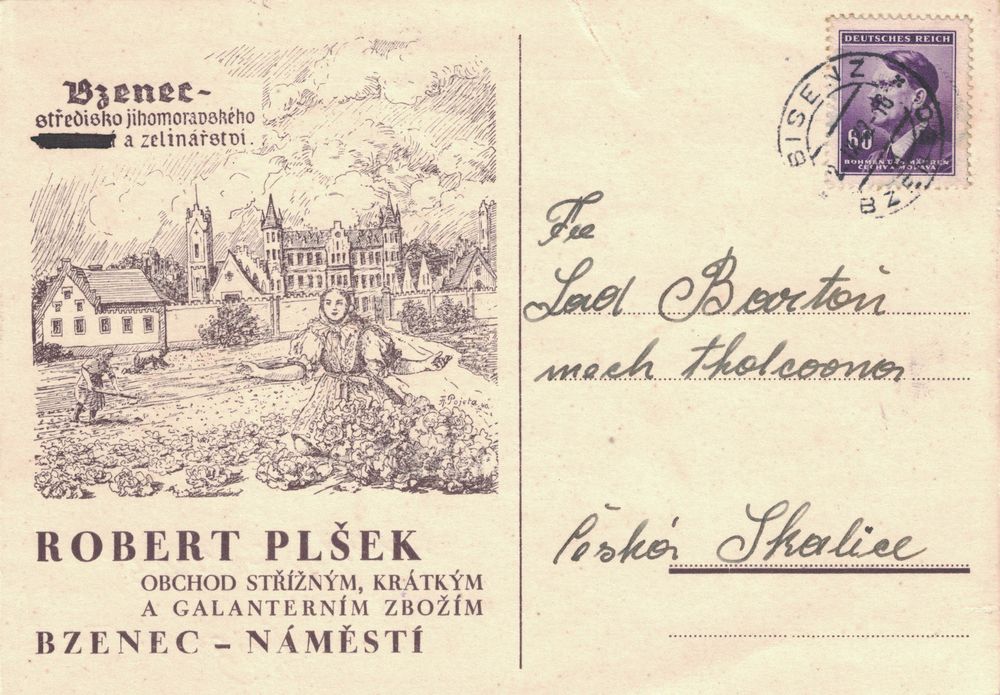 Bzenec-
středisko jihomoravského
a zelinářství.
F. Pojeta
ROBERT PLŠEK
OBCHOD STŘÍŽNÝM, KRÁTKÝM
A GALANTERNÍM ZBOŽÍM
BZENEC – NÁMĚSTÍ
DEUTSCHES REICH
60
BÖHMEN U. MÄHREN
ČECHY A MORAVA
BISENZ
BZENEC
Fa
Lad Bartoň
mech tkalcovna
Česká Skalice